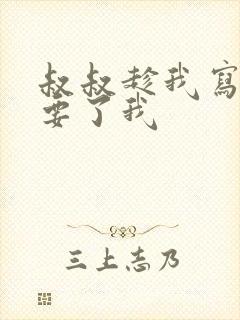 叔叔趁我寫
要了我
三上志乃